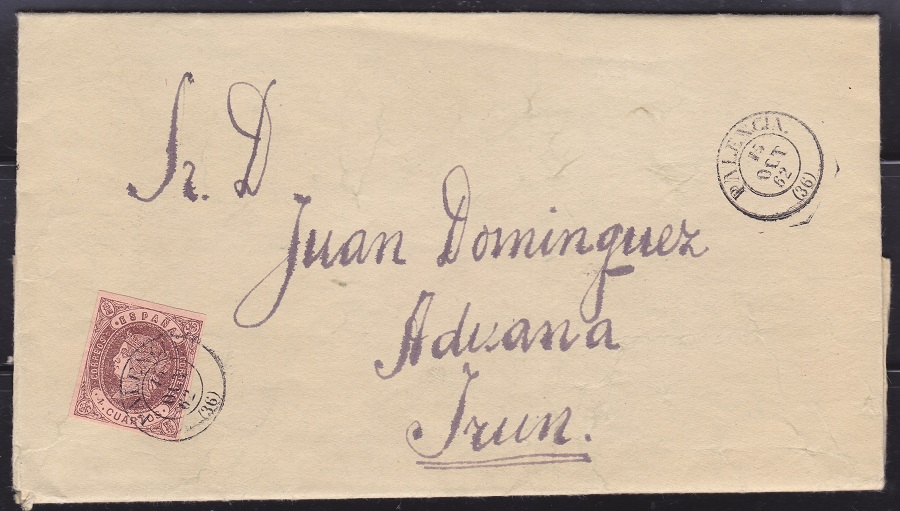 Sr. D
Juan Dominguez
Aduana
Irun.
PALENCIA.
15
OCT
62
(36)
ESPAÑA
CORREOS
4 CUARTOS
62
(36)